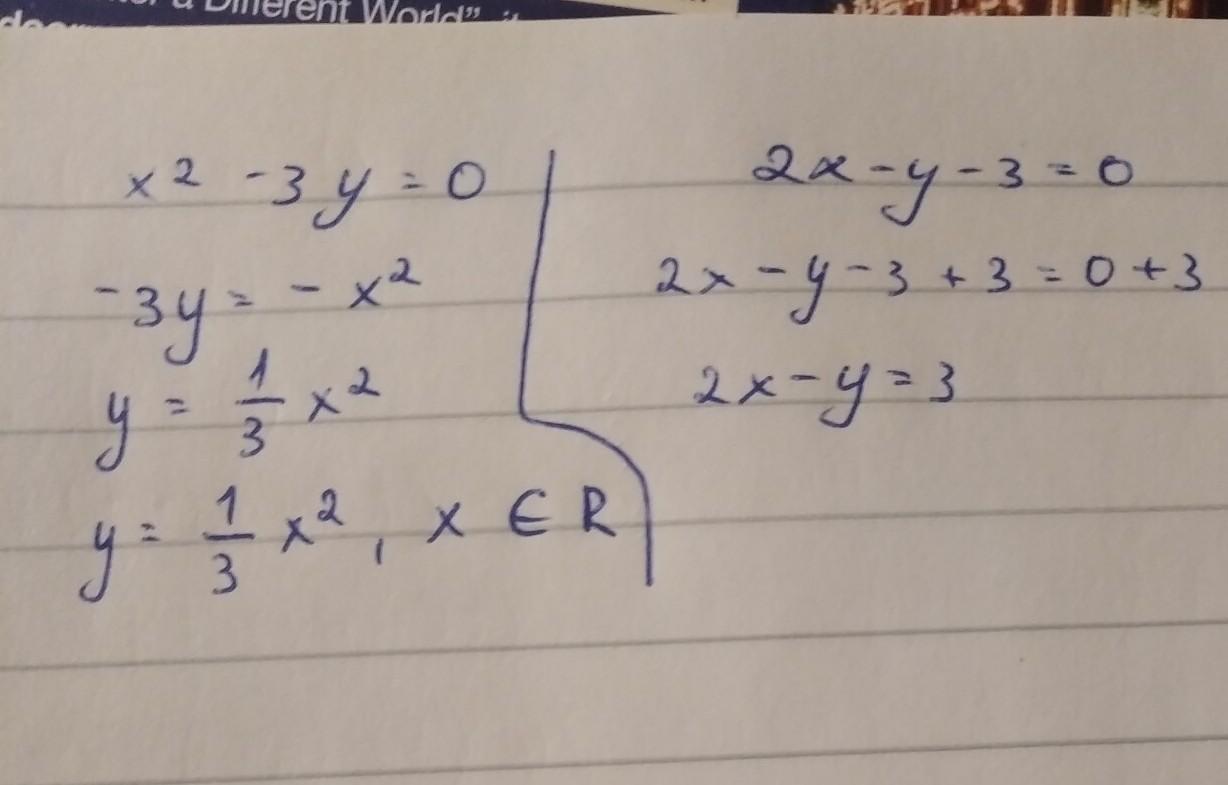 a Different World"
x² - 3y = 0
-3y = - x²
y = 1/3 x²
y = 1/3 x², x ∈ R
2x - y - 3 = 0
2x - y - 3 + 3 = 0 + 3
2x - y = 3